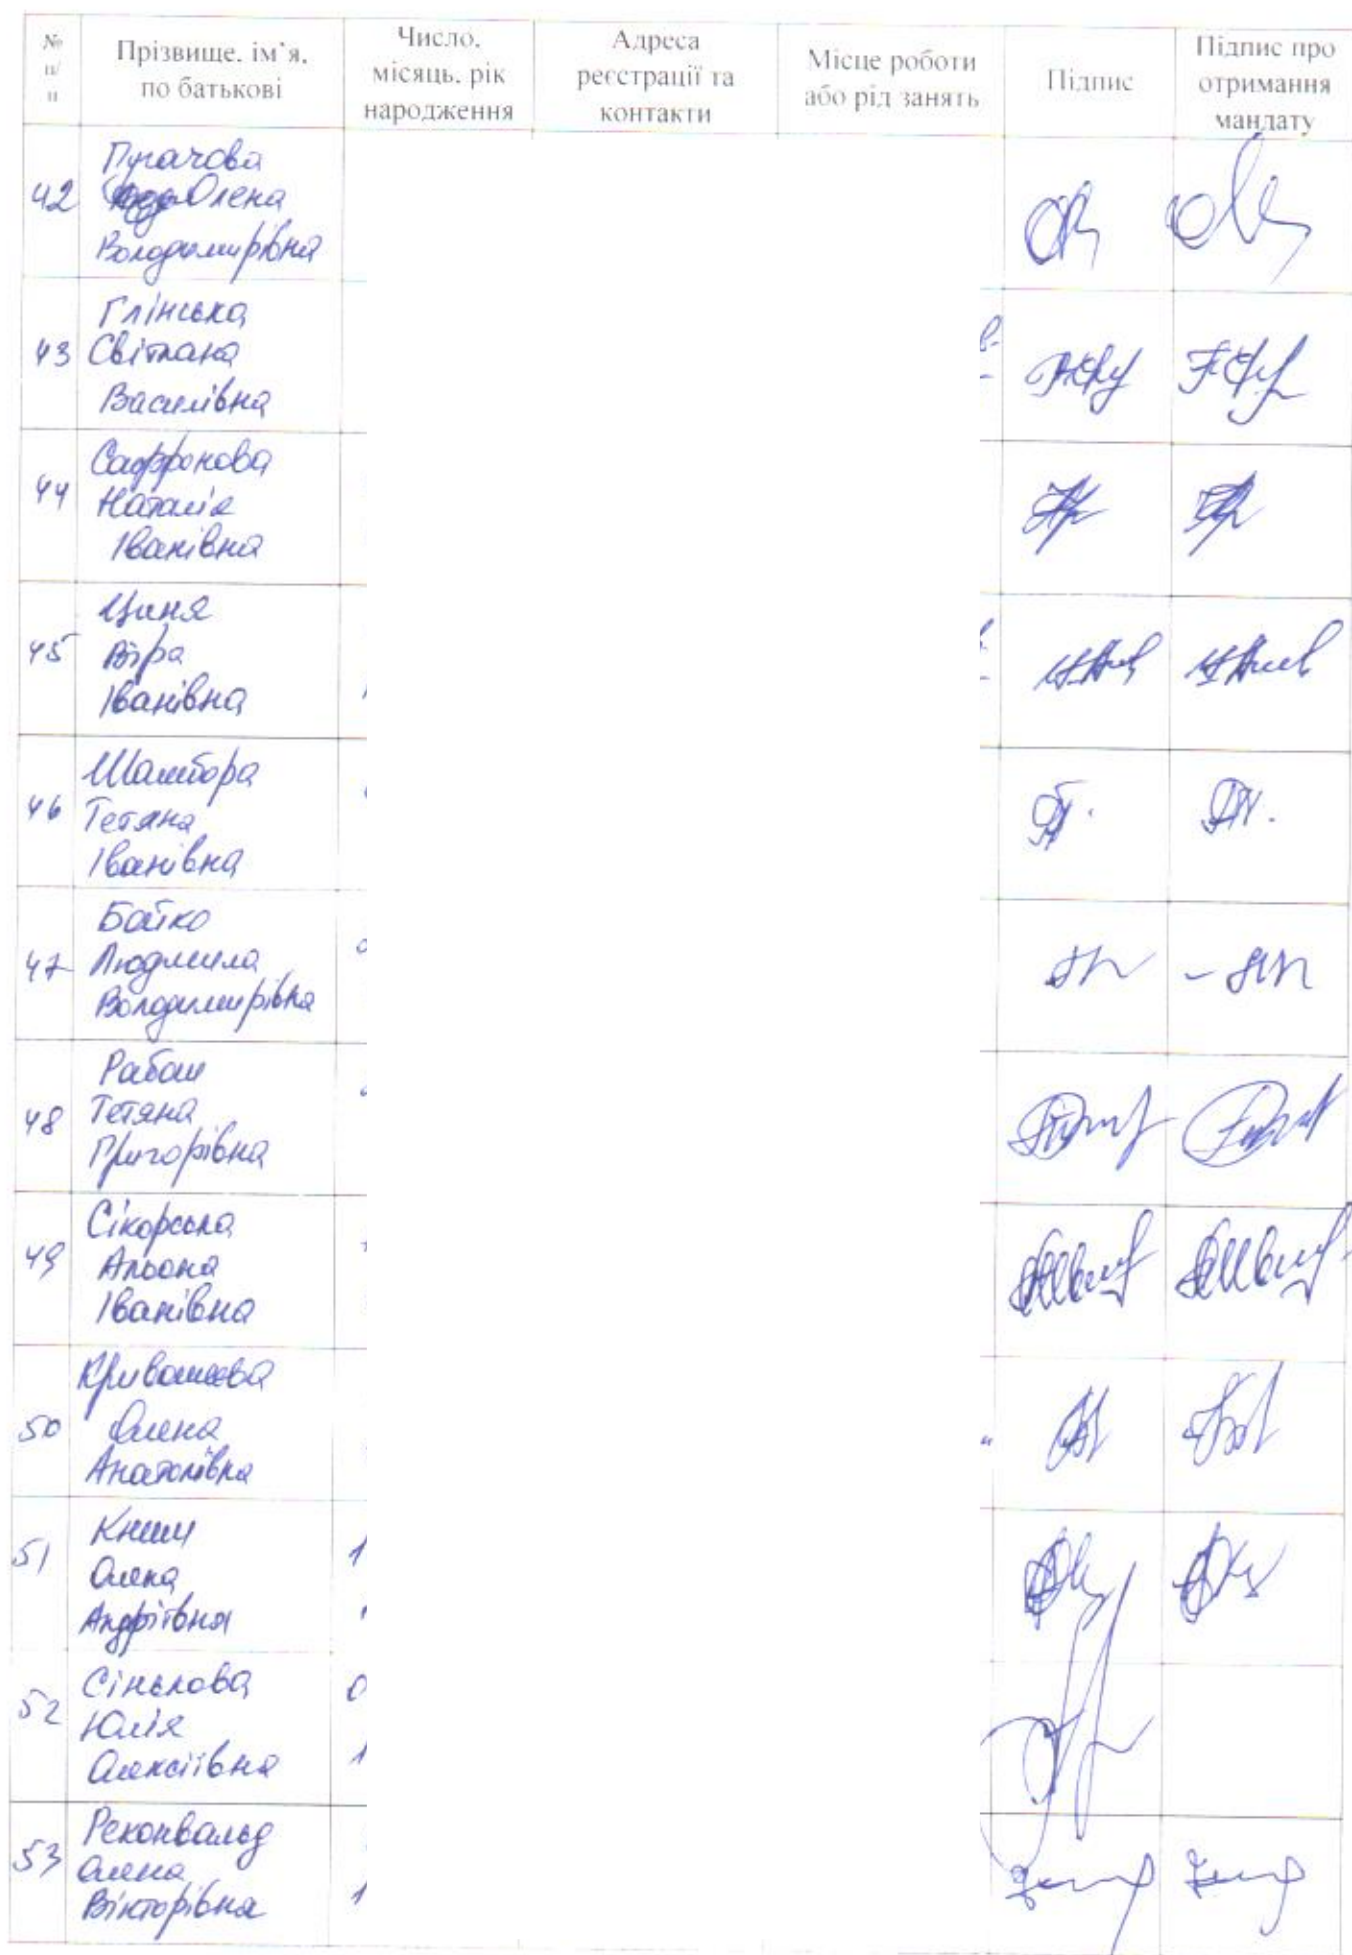 № п/п
Прізвище, ім`я, по батькові
Число, місяць, рік народження
Адреса реєстрації та контакти
Місце роботи або рід занять
Підпис
Підпис про отримання мандату
42
Пугачова
Олена
Володимирівна
43
Глінська
Світлана
Василівна
44
Сафронова
Наталія
Іванівна
45
Циня
Віра
Іванівна
46
Шамбора
Тетяна
Іванівна
47
Бойко
Людмила
Володимирівна
48
Рабош
Тетяна
Григорівна
49
Сікорська
Альона
Іванівна
50
Кривошеєва
Олена
Анатоліївна
51
Книш
Олена
Андріївна
52
Сінькова
Юлія
Олексіївна
53
Реконвальд
Олена
Вікторівна